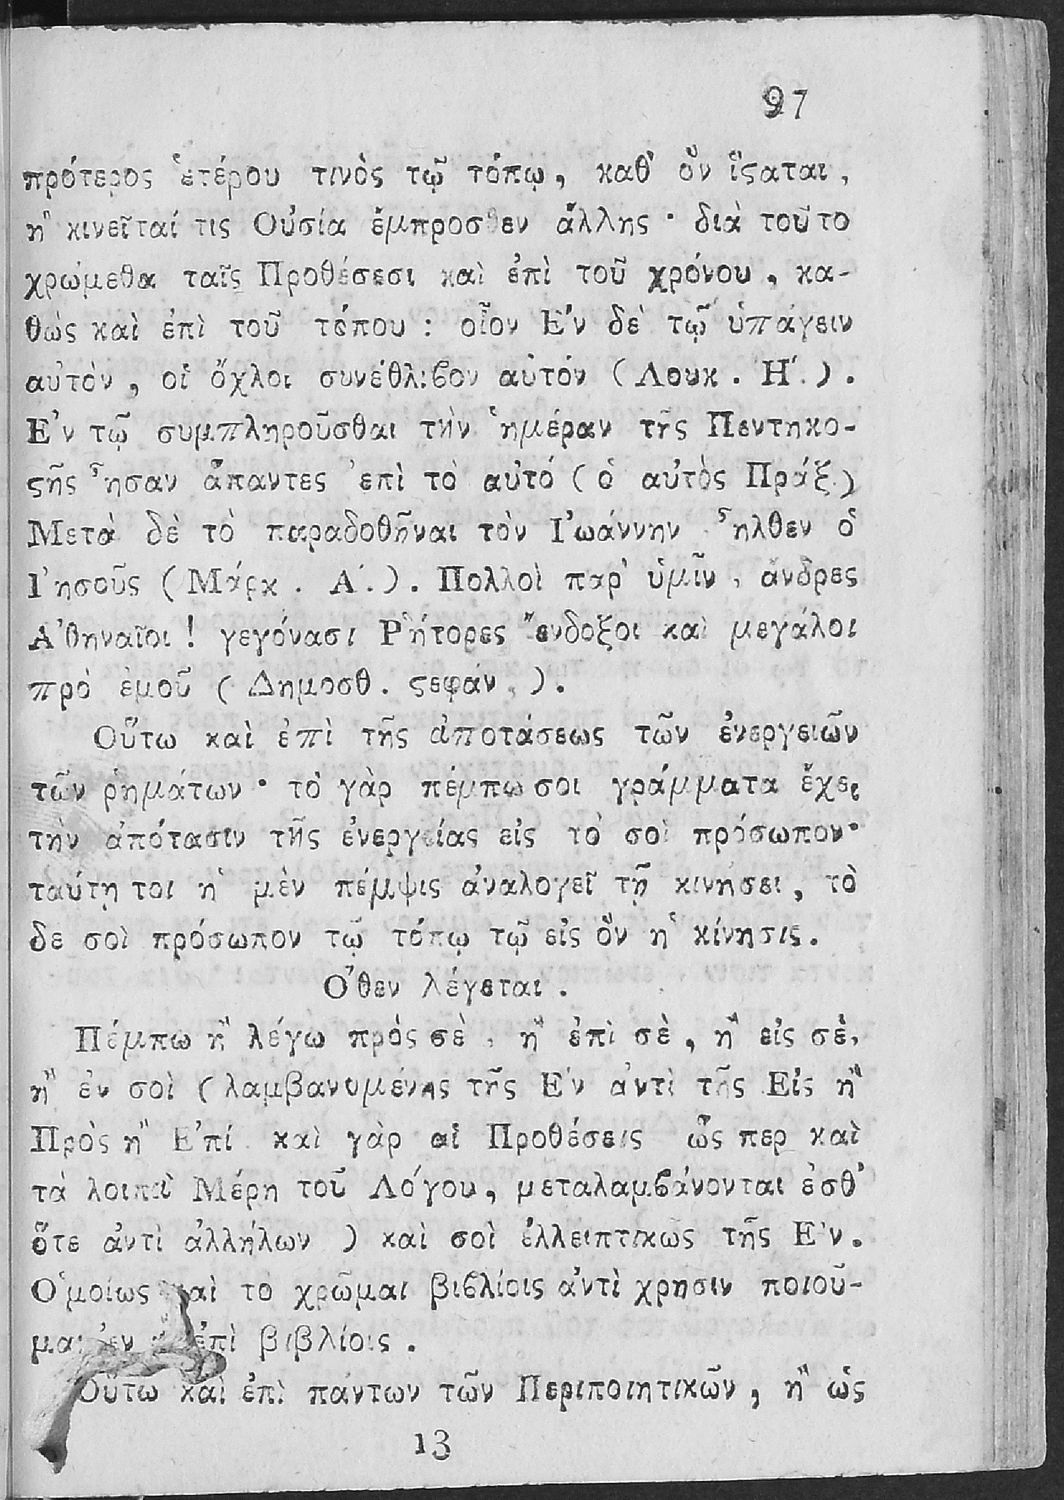 97
πρότερος ἑτέρου τινὸς τῷ τόπῳ, καθ' ὃν ἵϛαται,
ἢ κινεῖταί τις Οὐσία ἔμπροσθεν ἄλλης · διὰ τοῦτο
χρώμεθα ταῖς Προθέσεσι καὶ ἐπὶ τοῦ χρόνου, κα-
θὼς καὶ ἐπὶ τοῦ τόπου : οἷον Ε'ν δὲ τῷ ὑπάγειν
αὐτὸν, οἱ ὄχλοι συνέθλιβον αὐτόν (Λουκ. Η'.).
Ε'ν τῷ συμπληροῦσθαι τὴν ἡμέραν τῆς Πεντηκο-
ϛῆς ἦσαν ἅπαντες ἐπὶ τὸ αὐτό (ὁ αὐτὸς Πράξ.)
Μετὰ δὲ τὸ παραδοθῆναι τὸν Ι'ωάννην ἦλθεν ὁ
Ι'ησοῦς (Μάρκ. Α'.). Πολλοὶ παρ' ὑμῖν, ἄνδρες
Α'θηναῖοι! γεγόνασι Ρ'ήτορες ἔνδοξοι καὶ μεγάλοι
πρὸ ἐμοῦ (Δημοσθ. ϛεφάν.).
Οὕτω καὶ ἐπὶ τῆς ἀποτάσεως τῶν ἐνεργειῶν
τῶν ῥημάτων · τὸ γὰρ πέμπω σοι γράμματα ἔχει
τὴν ἀπότασιν τῆς ἐνεργείας εἰς τὸ σοὶ πρόσωπον·
ταύτῃ τοι ἡ μὲν πέμψις ἀναλογεῖ τῇ κινήσει, τὸ
δε σοὶ πρόσωπον τῷ τόπῳ τῷ εἰς ὃν ἡ κίνησις.
Ο'θεν λέγεται.
Πέμπω ἢ λέγω πρὸς σὲ, ἢ ἐπὶ σὲ, ἢ εἰς σὲ,
ἢ ἐν σοὶ (λαμβανομένης τῆς Ε'ν ἀντὶ τῆς Εἰς ἢ
Πρὸς ἢ Ε'πί καὶ γὰρ αἱ Προθέσεις ὥς περ καὶ
τὰ λοιπὰ Μέρη τοῦ Λόγου, μεταλαμβάνονται ἐσθ'
ὅτε ἀντὶ ἀλλήλων) καὶ σοὶ ἐλλειπτικῶς τῆς Ε'ν.
Ο'μοίως καὶ τὸ χρῶμαι βιβλίοις ἀντὶ χρῆσιν ποιοῦ-
μαι ἐν ἐπὶ βιβλίοις.
Οὕτω καὶ ἐπὶ πάντων τῶν Περιποιητικῶν, ἢ ὡς
13